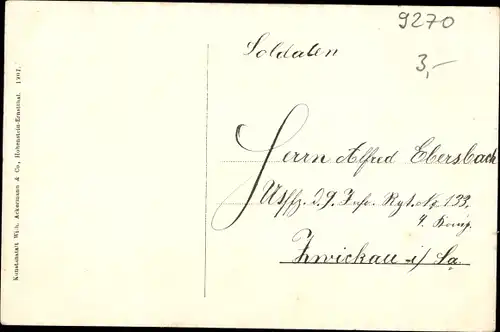 9270
3,-
Soldaten
Herrn Alfred Ebersbach
d. 9. Inf. Rgt. No 133.
4. Komp.
Zwickau i/ Sa
Kunstanstalt Wjb. Ackermann & Co., Hohenstein-Ernstthal. 1907.